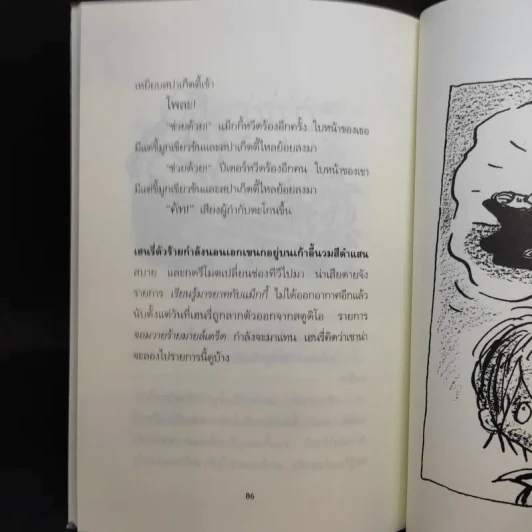 เหยียบสปาเก็ตตี้เข้า
โพละ!
“ช่วยด้วย!” แม็กกี้หวีดร้องอีกครั้ง ใบหน้าของเธอ
มีแต่ขี้มูกเขียวข้นและสปาเก็ตตี้ไหลย้อยลงมา
“ช่วยด้วย!” ปีเตอร์หวีดร้องอีกคน ใบหน้าของเขา
มีแต่ขี้มูกเขียวข้นและสปาเก็ตตี้ไหลย้อยลงมา
“คัท!” เสียงผู้กำกับตะโกนขึ้น
เฮนรี่ตัวร้ายกำลังนอนเอกเขนกอยู่บนเก้าอี้นวมสีดำแสน
สบาย และกดรีโมตเปลี่ยนช่องทีวีไปมา น่าเสียดายจัง
รายการ เรียนรู้มารยาทกับแม็กกี้ ไม่ได้ออกอากาศอีกแล้ว
นับตั้งแต่วันที่เฮนรี่ถูกลากตัวออกจากสตูดิโอ รายการ
จอมวายร้ายมายล์เตรีด กำลังจะมาแทน เฮนรี่คิดว่าเขาน่า
จะลองไปรายการนี้ดูบ้าง
86